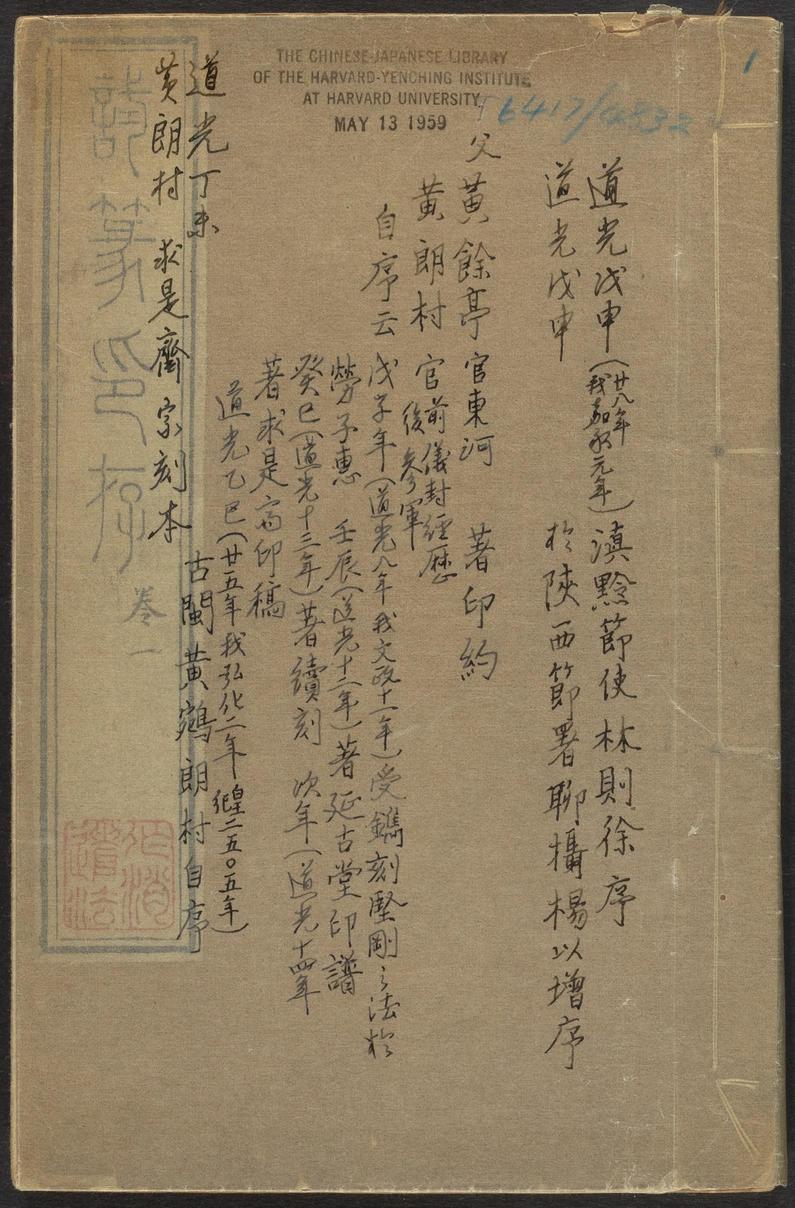 THE CHINESE-JAPANESE LIBRARY
OF THE HARVARD-YENCHING INSTITUTE
AT HARVARD UNIVERSITY
MAY 13 1959
T6417/4832
1
道光戊申（廿八年 我嘉永元年）滇黔節使林則徐序
道光戊申 於陝西節署聊攝楊以增序
父黃餘亭官東河 著印約
黃朗村官前儀封經歷 後參軍
自序云戊子年（道光八年我文政十一年）受鐫刻堅剛之法於
勞子惠 壬辰（道光十二年）著延古堂印譜
癸巳（道光十三年）著續刻 次年（道光十四年
著求是齋印稿
道光乙巳（廿五年我弘化二年 皇紀二五〇五年）
古閩黃鵷朗村自序
道光丁未
黃朗村 求是齋家刻本
篆印存
卷一